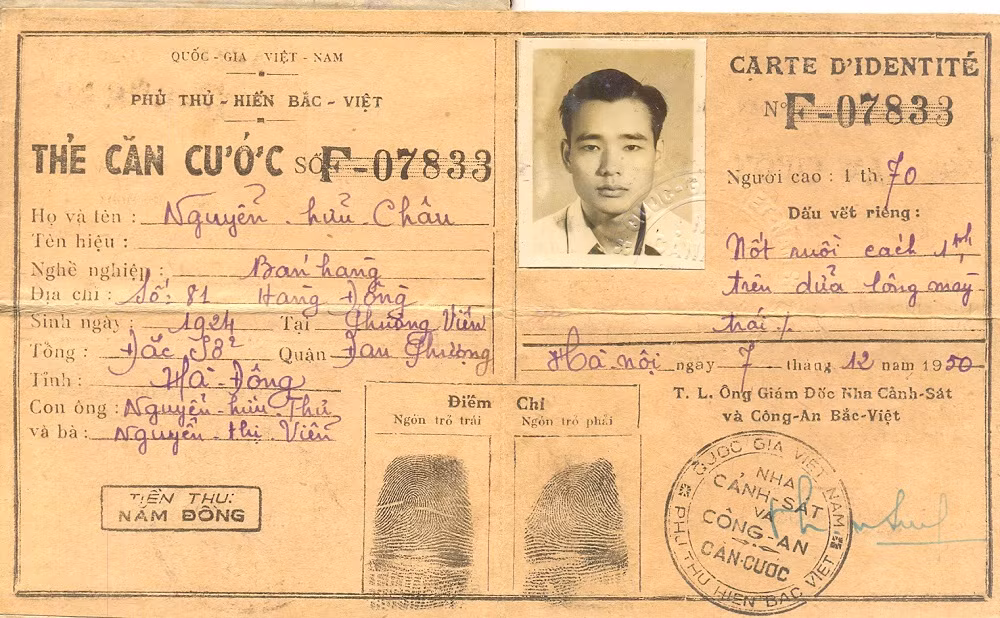 QUỐC - GIA - VIỆT - NAM
PHỦ THỦ - HIẾN BẮC - VIỆT
THẺ CĂN CƯỚC SỐ F-07833
Họ và tên : Nguyễn - hữu Châu
Tên hiệu :
Nghề nghiệp : Bán hàng
Địa chỉ : Số: 81 Hàng Đồng
Sinh ngày : 1924 Tại Phương Viên
Tổng : Đắc Sở Quận Đan Phượng
Tỉnh : Hà - Đông
Con ông : Nguyễn - hữu - Thử
và bà : Nguyễn - thị Viên
TIỀN THU:
NĂM ĐỒNG
Điểm Chỉ
Ngón trỏ trái Ngón trỏ phải
CARTE D'IDENTITÉ
N° F-07833
Người cao : 1 th. 70
Dấu vết riêng :
Nốt ruồi cách 1th
trên đửa lông mày
trái /.
Hà-nội ngày 7 tháng 12 năm 1950
T. L. Ông Giám Đốc Nha Cảnh-Sát
và Công-An Bắc-Việt
QUỐC GIA VIỆT NAM
PHỦ THỦ HIẾN BẮC VIỆT
NHA
CẢNH-SÁT
VÀ
CÔNG-AN
CĂN-CƯỚC